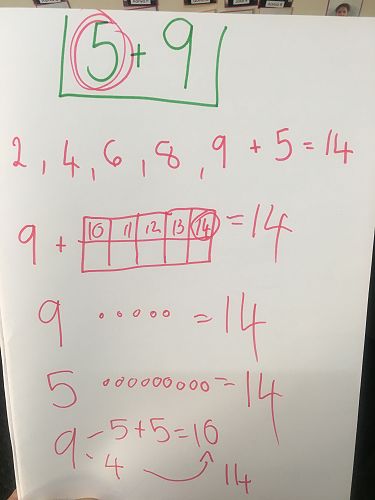 5 + 9
2, 4, 6, 8, 9 + 5 = 14
9 + 10 11 12 13 14 = 14
9 ..... = 14
5 ooooooooo = 14
9 - 5 + 5 = 10
- 4 14